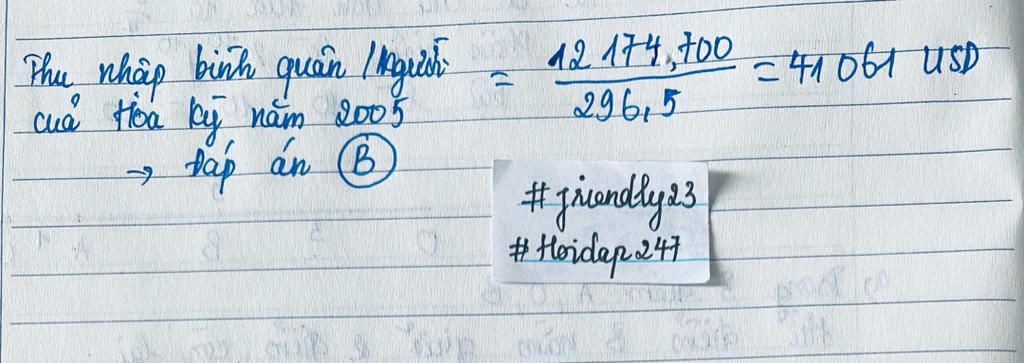 Thu nhập bình quân /Người = 12 174,700 / 296,5 = 41 061 USD
của Hoa Kỳ năm 2005
→ Đáp án B
#friendly23
#Hoidap247